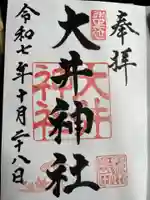 奉拝
大井神社
令和七年十月二十八日